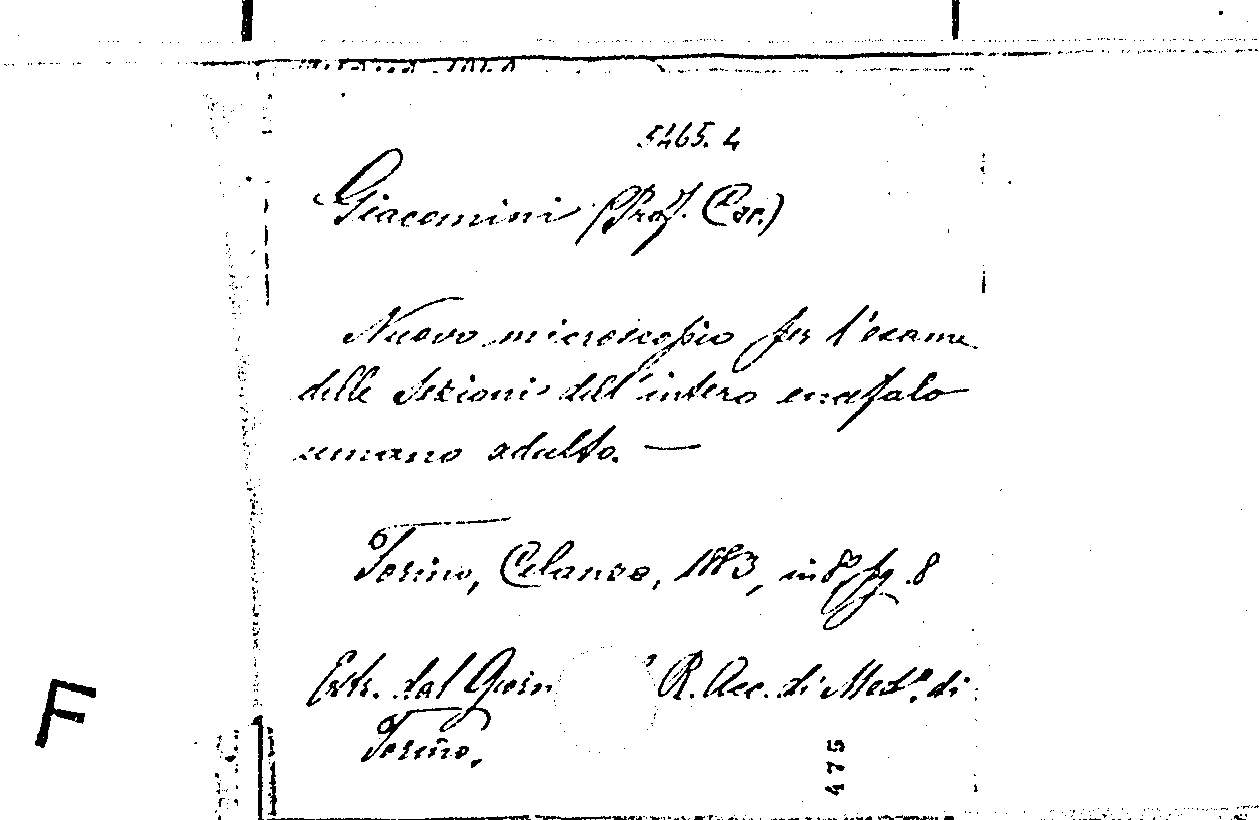 5465.4
Giacomini (Prof. Car.)
Nuovo microscopio per l'esame
delle sezioni dell'intero encefalo
umano adulto. —
Torino, Celanza, 1883, in 8º, pg. 8
Estr. dal Giorn R. Acc. di Medª. di
Torino.
475
F